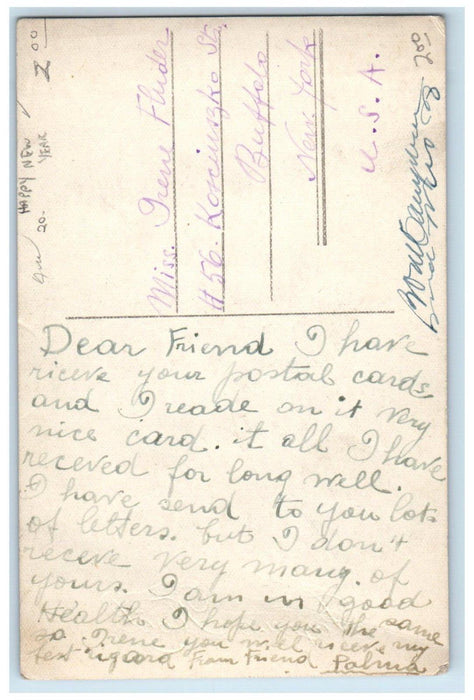 Miss. Irene Fluder
# 56. Kosciuszko St.
Buffalo
New York
U. S. A.
HAPPY NEW
YEAR
20.
2 00
200
Dear Friend I have
riceve your postal cards
and I reade on it very
nice card. it all I have
receved for long well.
I have send to you lots
of letters. but I don't
receve very many of
yours. I am in good
Health I hope you the same
so. Irene you will riceve my
best rigard From Friend Palma